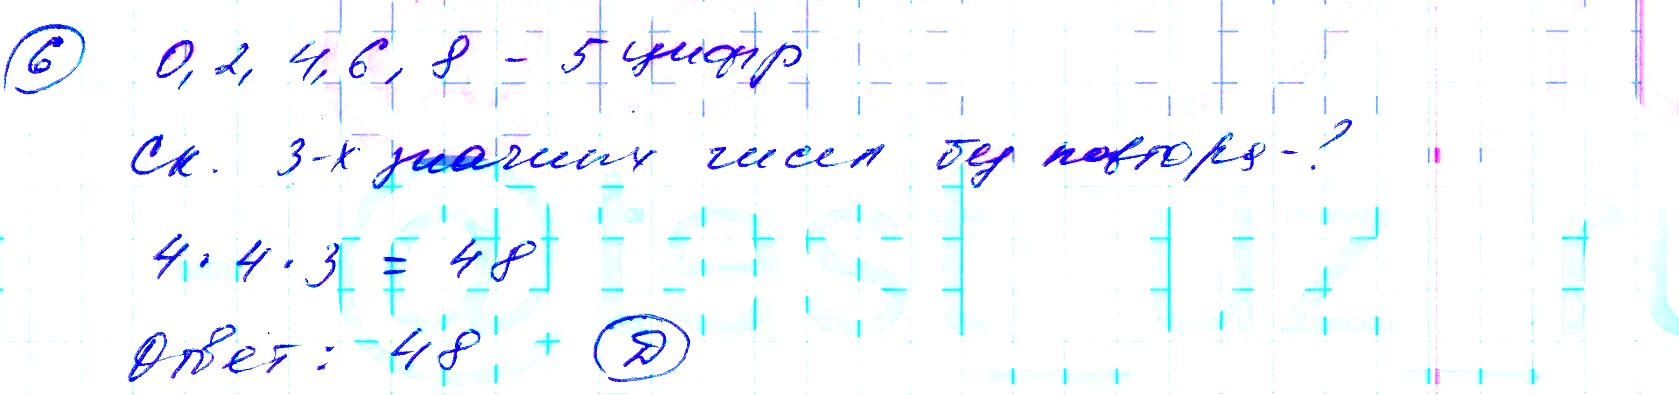 6 0, 2, 4, 6, 8 - 5 цифр
Ск. 3-х значных чисел без повторя-?
4 · 4 · 3 = 48
Ответ: 48 D
@test_uz_ru